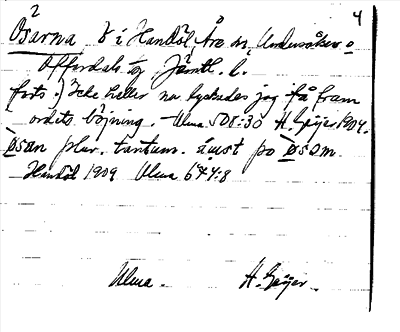 4
2
Ösarna § i Handöl, Åre sn, Undersåker o
Offerdals tg Jämtl. l.
forts.) Icke heller nu lyckades jag få fram
ordets böjning. - Ulma 508:30 H. Geijer 1904.
ösan plur. tantum. dust po ösom.
Handöl 1909 Ulma 644:8
Ulma. H. Geijer.